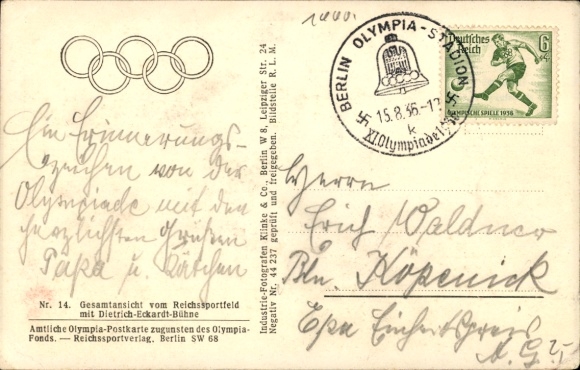 1000.
Ein Erinnerungs-
zeichen von der
Olympiade mit den
herzlichsten Grüßen
Papa u.
Nr. 14. Gesamtansicht vom Reichssportfeld
mit Dietrich-Eckardt-Bühne
Amtliche Olympia-Postkarte zugunsten des Olympia-
Fonds. — Reichssportverlag, Berlin SW 68
Industrie-Fotografen Klinke & Co., Berlin W 8, Leipziger Str. 24
Negativ Nr. 44 237 geprüft und freigegeben. Bildstelle R. L. M.
BERLIN OLYMPIA-STADION
15.8.36.-12
k
XI. Olympiade 1936
Deutsches
Reich
6
+4
OLYMPISCHE SPIELE 1936
Herrn
Erich Walduco
Bln. Köpenick
Epa Einheitspreis
A. G.